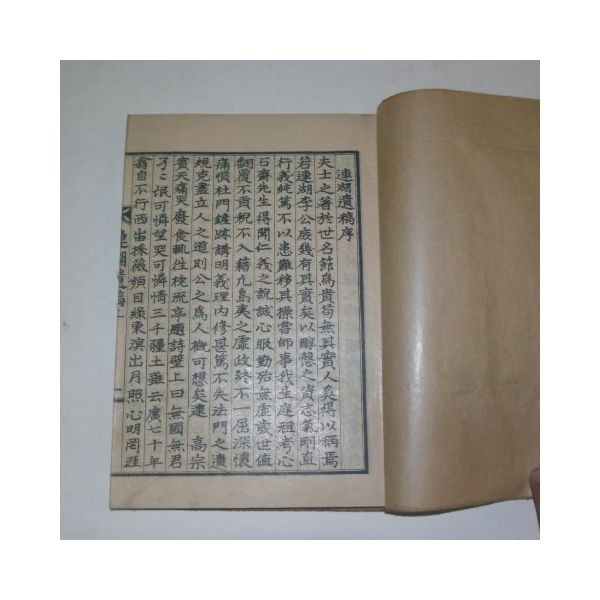 連湖遺稿序
夫士之著於世名節爲貴苟無其實人奚得以稱焉
若連湖李公庶幾有其實矣以醇慤之資志氣剛直
行義純篤不以患難移其操嘗師事我生庭祖考心
石齋先生得聞仁義之說誠心服勤殆無虛歲世值
翻覆不貢稅不入籍凡島夷之虐政終不一屈深懷
痛憤杜門鏟跡講明義理內修甚篤不失法門之遺
規克盡立人之道則公之爲人槪可想矣逮 高宗
賓天痛哭廢食輒往枕流亭題詩壁上曰無國無君
哭可憐情三千疆土雖云廣七十年
翁自不行西峀採薇頻目綠東溟出月照心明罔涯
連湖遺稿